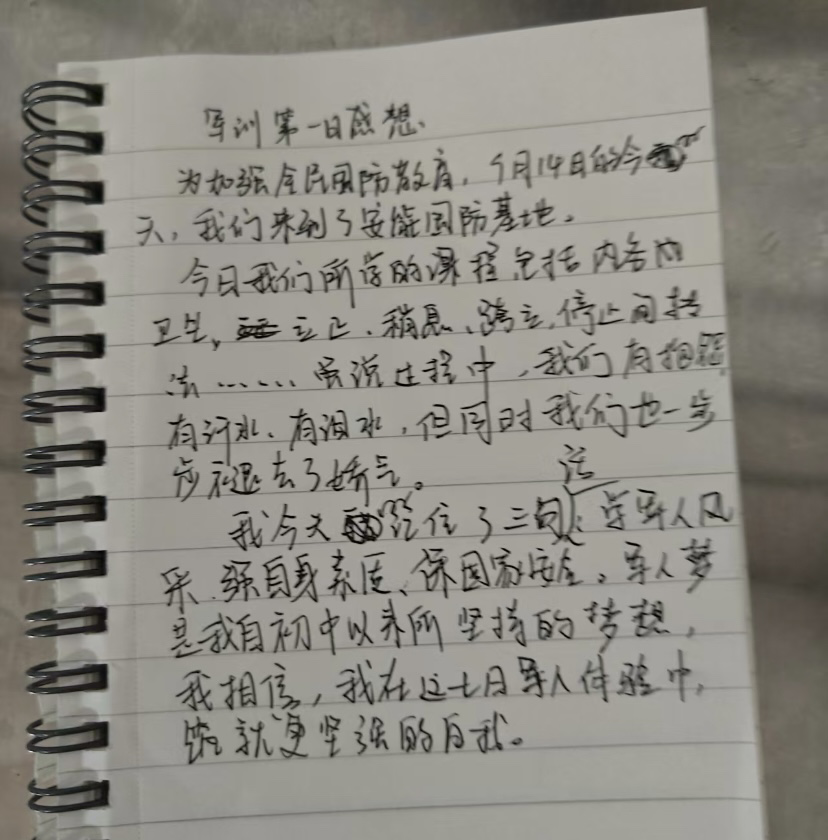 军训第一日感想.
为加强全民国防教育,9月14日的今
天,我们来到了安能国防基地。
今日我们所学的课程包括内务内
卫生,立正、稍息、跨立,停止间转
法……虽说过程中,我们有
有汗水、有泪水,但同时我们也一步
步褪去了娇气。
我今天记住了三句话:学军人风
采、强自身素质、保国家安全。军人梦
是我自初中以来所坚持的梦想,
我相信,我在这七日军人体验中,
能就更坚强的自我。